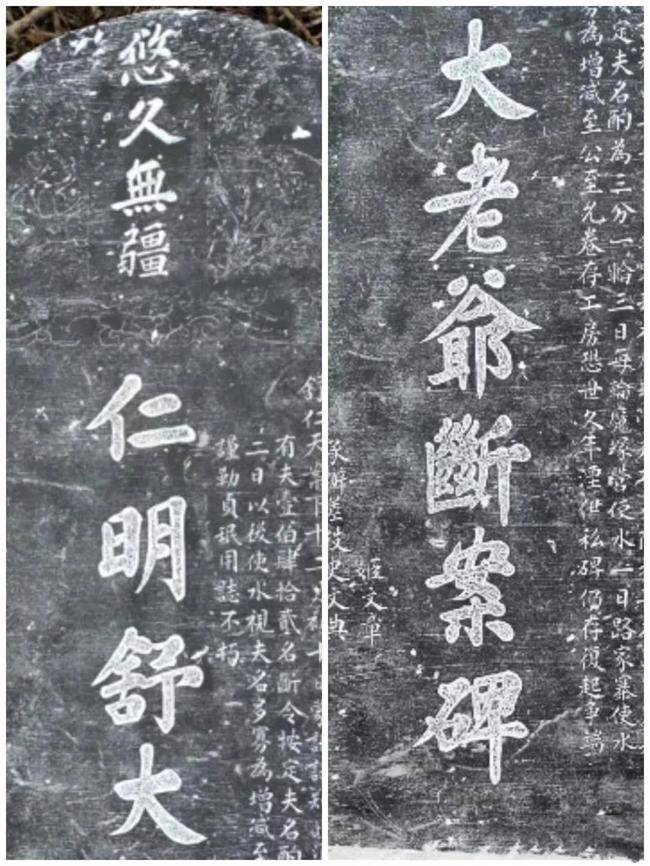 悠久無疆
仁明舒大
有夫壹伯肆拾貳名斷令按定夫名酌
二日以後使水視夫名多寡為增減至
謹勒貞珉用誌不朽
按定夫名酌為三分一輪三日每論魔塚營使水一日路家寨使水
為增減至公至允卷存工房恐世久年湮但私碑仍存復起爭端
大老爺斷案碑
姬文章